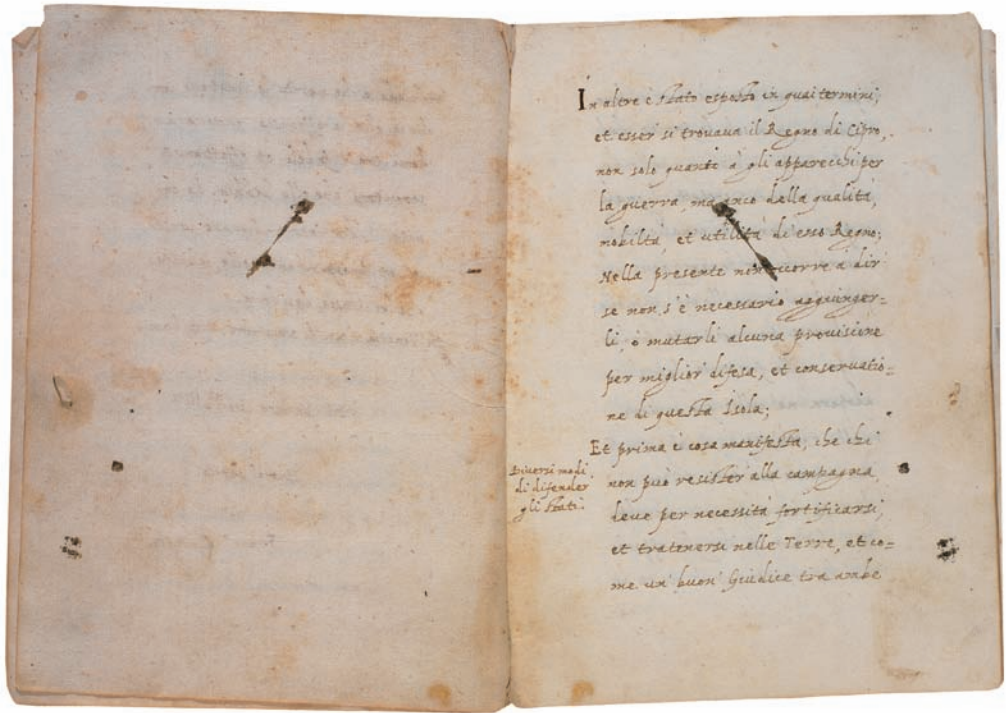 In altre è stato esposto in quai termini,
et esser si trovava il Regno di Cipro,
non solo quanto à gli apparecchi per
la guerra, ma anco della qualità,
nobiltà, et utilità di esso Regno;
Nella presente non occorre à dir
se non s'è necessario aggiunger=
li, ò mutarli alcuna provisione
per miglior difesa, et conservatio=
ne di questa Isola;
Et prima è cosa manifesta, che chi
non può resister alla campagna,
deve per necessità fortificarsi,
et tratenersi nelle Terre, et co=
me un buon Giudice tra ambe
Diversi modi
di difender
gli stati.